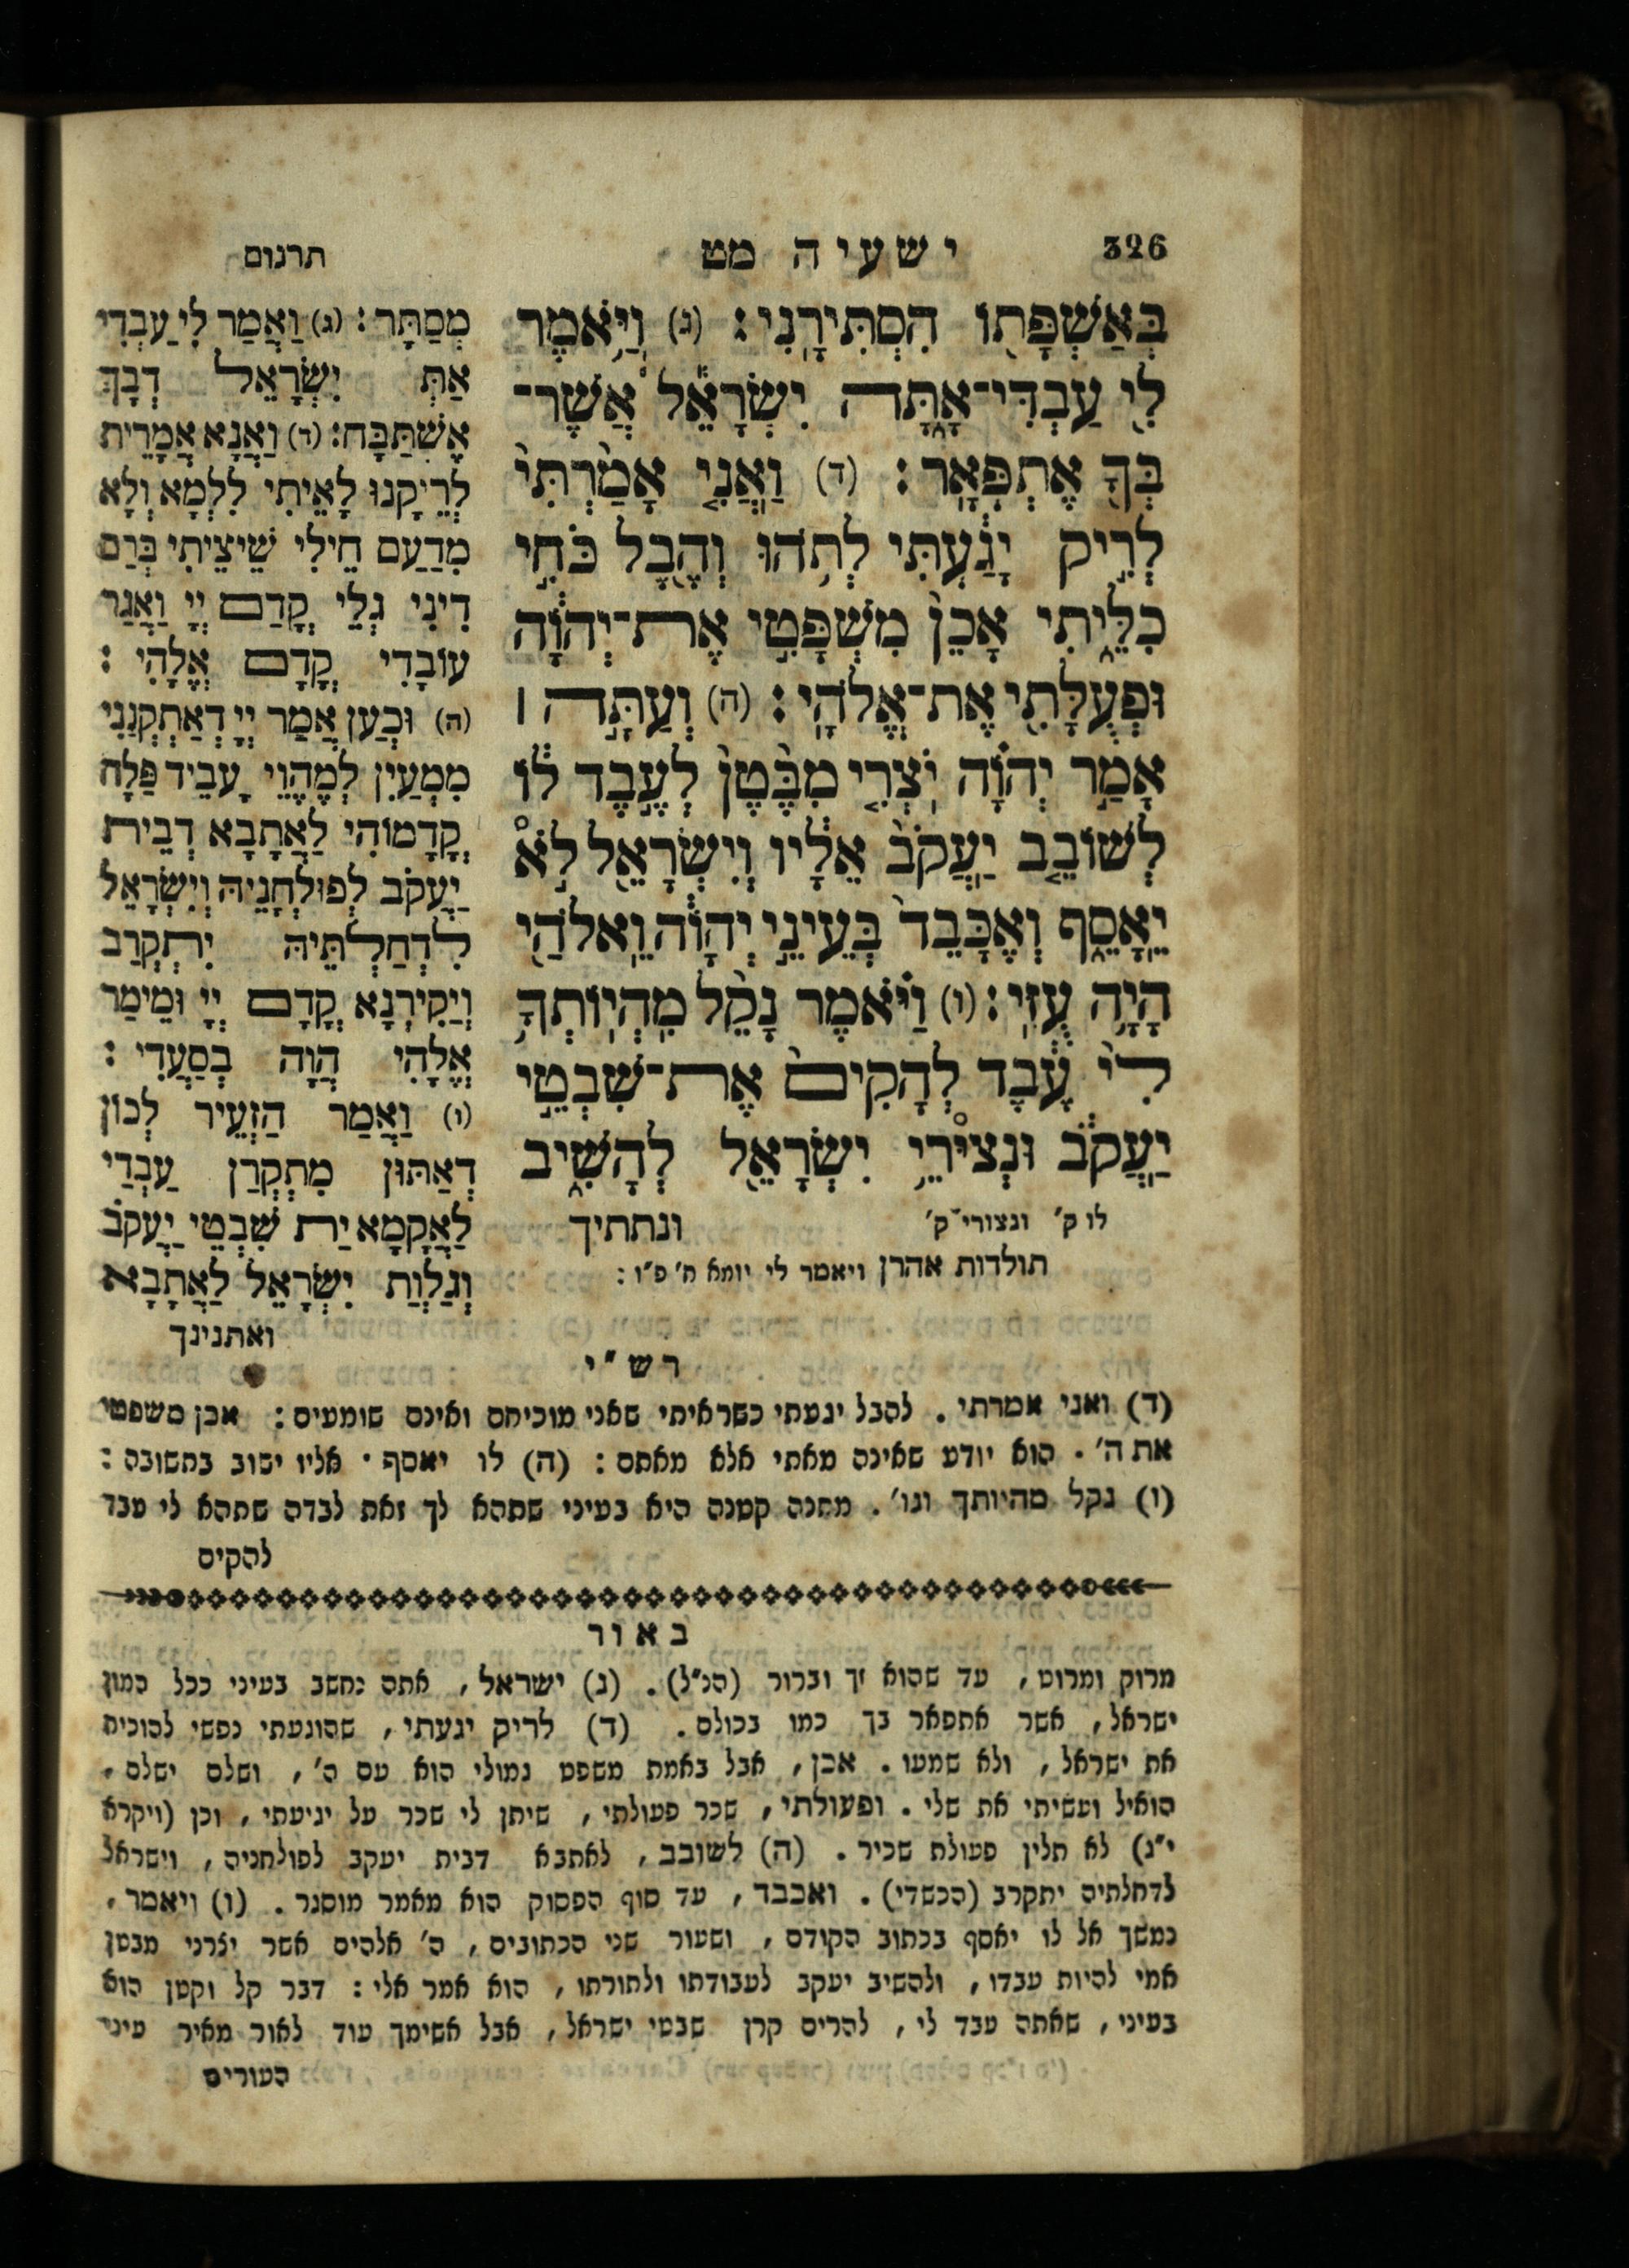 326
ישעיה מט
תרגום
בְּאַשְׁפָּת֖וֹ הִסְתִּירָֽנִי׃ (ג) וַיֹּ֥אמֶר
לִ֖י עַבְדִּי־אָ֑תָּה יִשְׂרָאֵ֕ל אֲשֶׁר־
בְּךָ֖ אֶתְפָּאָֽר׃ (ד) וַאֲנִ֤י אָמַ֙רְתִּי֙
לְרִ֣יק יָגַ֔עְתִּי לְתֹ֥הוּ וְהֶ֖בֶל כֹּחִ֣י
כִלֵּ֑יתִי אָכֵן֙ מִשְׁפָּטִ֣י אֶת־יְהוָ֔ה
וּפְעֻלָּתִ֖י אֶת־אֱלֹהָֽי׃ (ה) וְעַתָּ֣ה ׀
אָמַ֣ר יְהוָ֗ה יֹצְרִ֤י מִבֶּ֙טֶן֙ לְעֶ֣בֶד ל֔וֹ
לְשׁוֹבֵ֤ב יַֽעֲקֹב֙ אֵלָ֔יו וְיִשְׂרָאֵ֖ל לֹ֣א
יֵֽאָסֵ֑ף וְאֶכָּבֵד֙ בְּעֵינֵ֣י יְהוָ֔ה וֵֽאלֹהַ֖י
הָיָ֥ה עֻזִּֽי׃ (ו) וַיֹּ֗אמֶר נָקֵ֨ל מִֽהְיֽוֹתְךָ֥
לִי֙ עֶ֔בֶד לְהָקִים֙ אֶת־שִׁבְטֵ֣י
יַֽעֲקֹ֔ב וּנְצירֵ֥י יִשְׂרָאֵ֖ל לְהָשִׁ֑יב
לו ק׳ ונצורי ק׳
ונתתיך
תולדות אהרן ויאמר לי יומא ח׳ פ״ו :
מְסַתָּר׃ (ג) וַאֲמַר לִי עַבְדִי
אַתְּ יִשְׂרָאֵל דְבָךְ
אֶשְׁתַּבָּח׃ (ד) וַאֲנָא אֲמָרֵית
לְרֵיקָנוּ לָאֵיתִי לִלְמָא וְלָא
מִדַעַם חֵילִי שֵׁיצֵיתִי בְּרַם
דִינִי גְלֵי קֳדָם יְיָ וַאֲגַר
עוֹבָדִי קֳדָם אֱלָהִי׃
(ה) וּכְעַן אֲמַר יְיָ דְאַתְקְנַנִי
מִמְעַיִן לְמֶהֱוֵי עָבֵיד פַּלָּח
קֳדָמוֹהִי לַאֲתָבָא דְבֵית
יַעֲקֹב לְפוּלְחָנֵיהּ וְיִשְׂרָאֵל
לְדַחַלְתֵּיהּ יִתְקְרַב
וְיַקִירְנָא קֳדָם יְיָ וּמֵימַר
אֱלָהִי הֲוָה בְסַעֲדִי׃
(ו) וַאֲמַר הַזְעֵיר לְכוֹן
דְאַתּוּן מִתְקְרַן עַבְדַי
לַאֲקָמָא יַת שִׁבְטֵי יַעֲקֹב
וְגַלְוַת יִשְׂרָאֵל לַאֲתָבָא
ואתנינך
רש״י
(ד) ואני אמרתי . להבל יגעתי כשראיתי שאני מוכיחם ואינם שומעים : אכן משפטי
את ה׳ . הוא יודע שאינה מאתי אלא מאתם : (ה) לו יאסף . אליו ישוב בתשובה :
(ו) נקל מהיותך וגו׳ . מתנה קטנה היא בעיני שתהא לך זאת לבדה שתהא לי עבד
להקים
באור
מרוק ומרוט , עד שהוא זך וברור (הנ״ל) . (ג) ישראל , אתה נחשב בעיני ככל המון
ישראל , אשר אתפאר בך כמו בכולם . (ד) לריק יגעתי , שהוגעתי נפשי להוכיח
את ישראל , ולא שמעו . אכן , אבל באמת משפט גמולי הוא עם ה׳ , ושלם ישלם ,
הואיל ועשיתי את שלי . ופעולתי , שכר פעולתי , שיתן לי שכר על יגיעתי , וכן (ויקרא
י״ג) לא תלין פעולת שכיר . (ה) לשובב , לאתבא דבית יעקב לפולחניה , וישראל
לדחלתיה יתקרב (הכשדי) . ואכבד , עד סוף הפסוק הוא מאמר מוסגר . (ו) ויאמר ,
נמשך אל לו יאסף בכתוב הקודם , ושעור שני הכתובים , ה׳ אלהים אשר יצרני מבטן
אמי להיות עבדו , ולהשיב יעקב לעבודתו ולתורתו , הוא אמר אלי : דבר קל וקטן הוא
בעיני , שאתה עבד לי , להרים קרן שבטי ישראל , אבל אשימך עוד לאור מאיר עיני
העורים